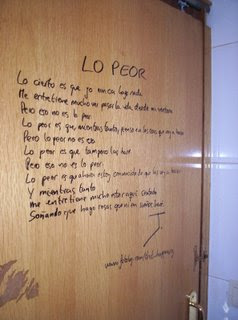 LO PEOR
Lo cierto es que yo nunca hago nada
Me entretiene mucho ver pasar la vida desde mi ventana
Pero eso no es lo peor
Lo peor es que, mientras tanto, pienso en las cosas que voy a hacer
Pero lo peor no es eso
Lo peor es que tampoco las haré
Pero eso no es lo peor
Lo peor es que ahora estoy convencido de que las voy a hacer
Y mientras tanto
me entretiene mucho estar aquí sentado
Soñando que hago cosas que ni un sueño haré
www.fotolog.com/